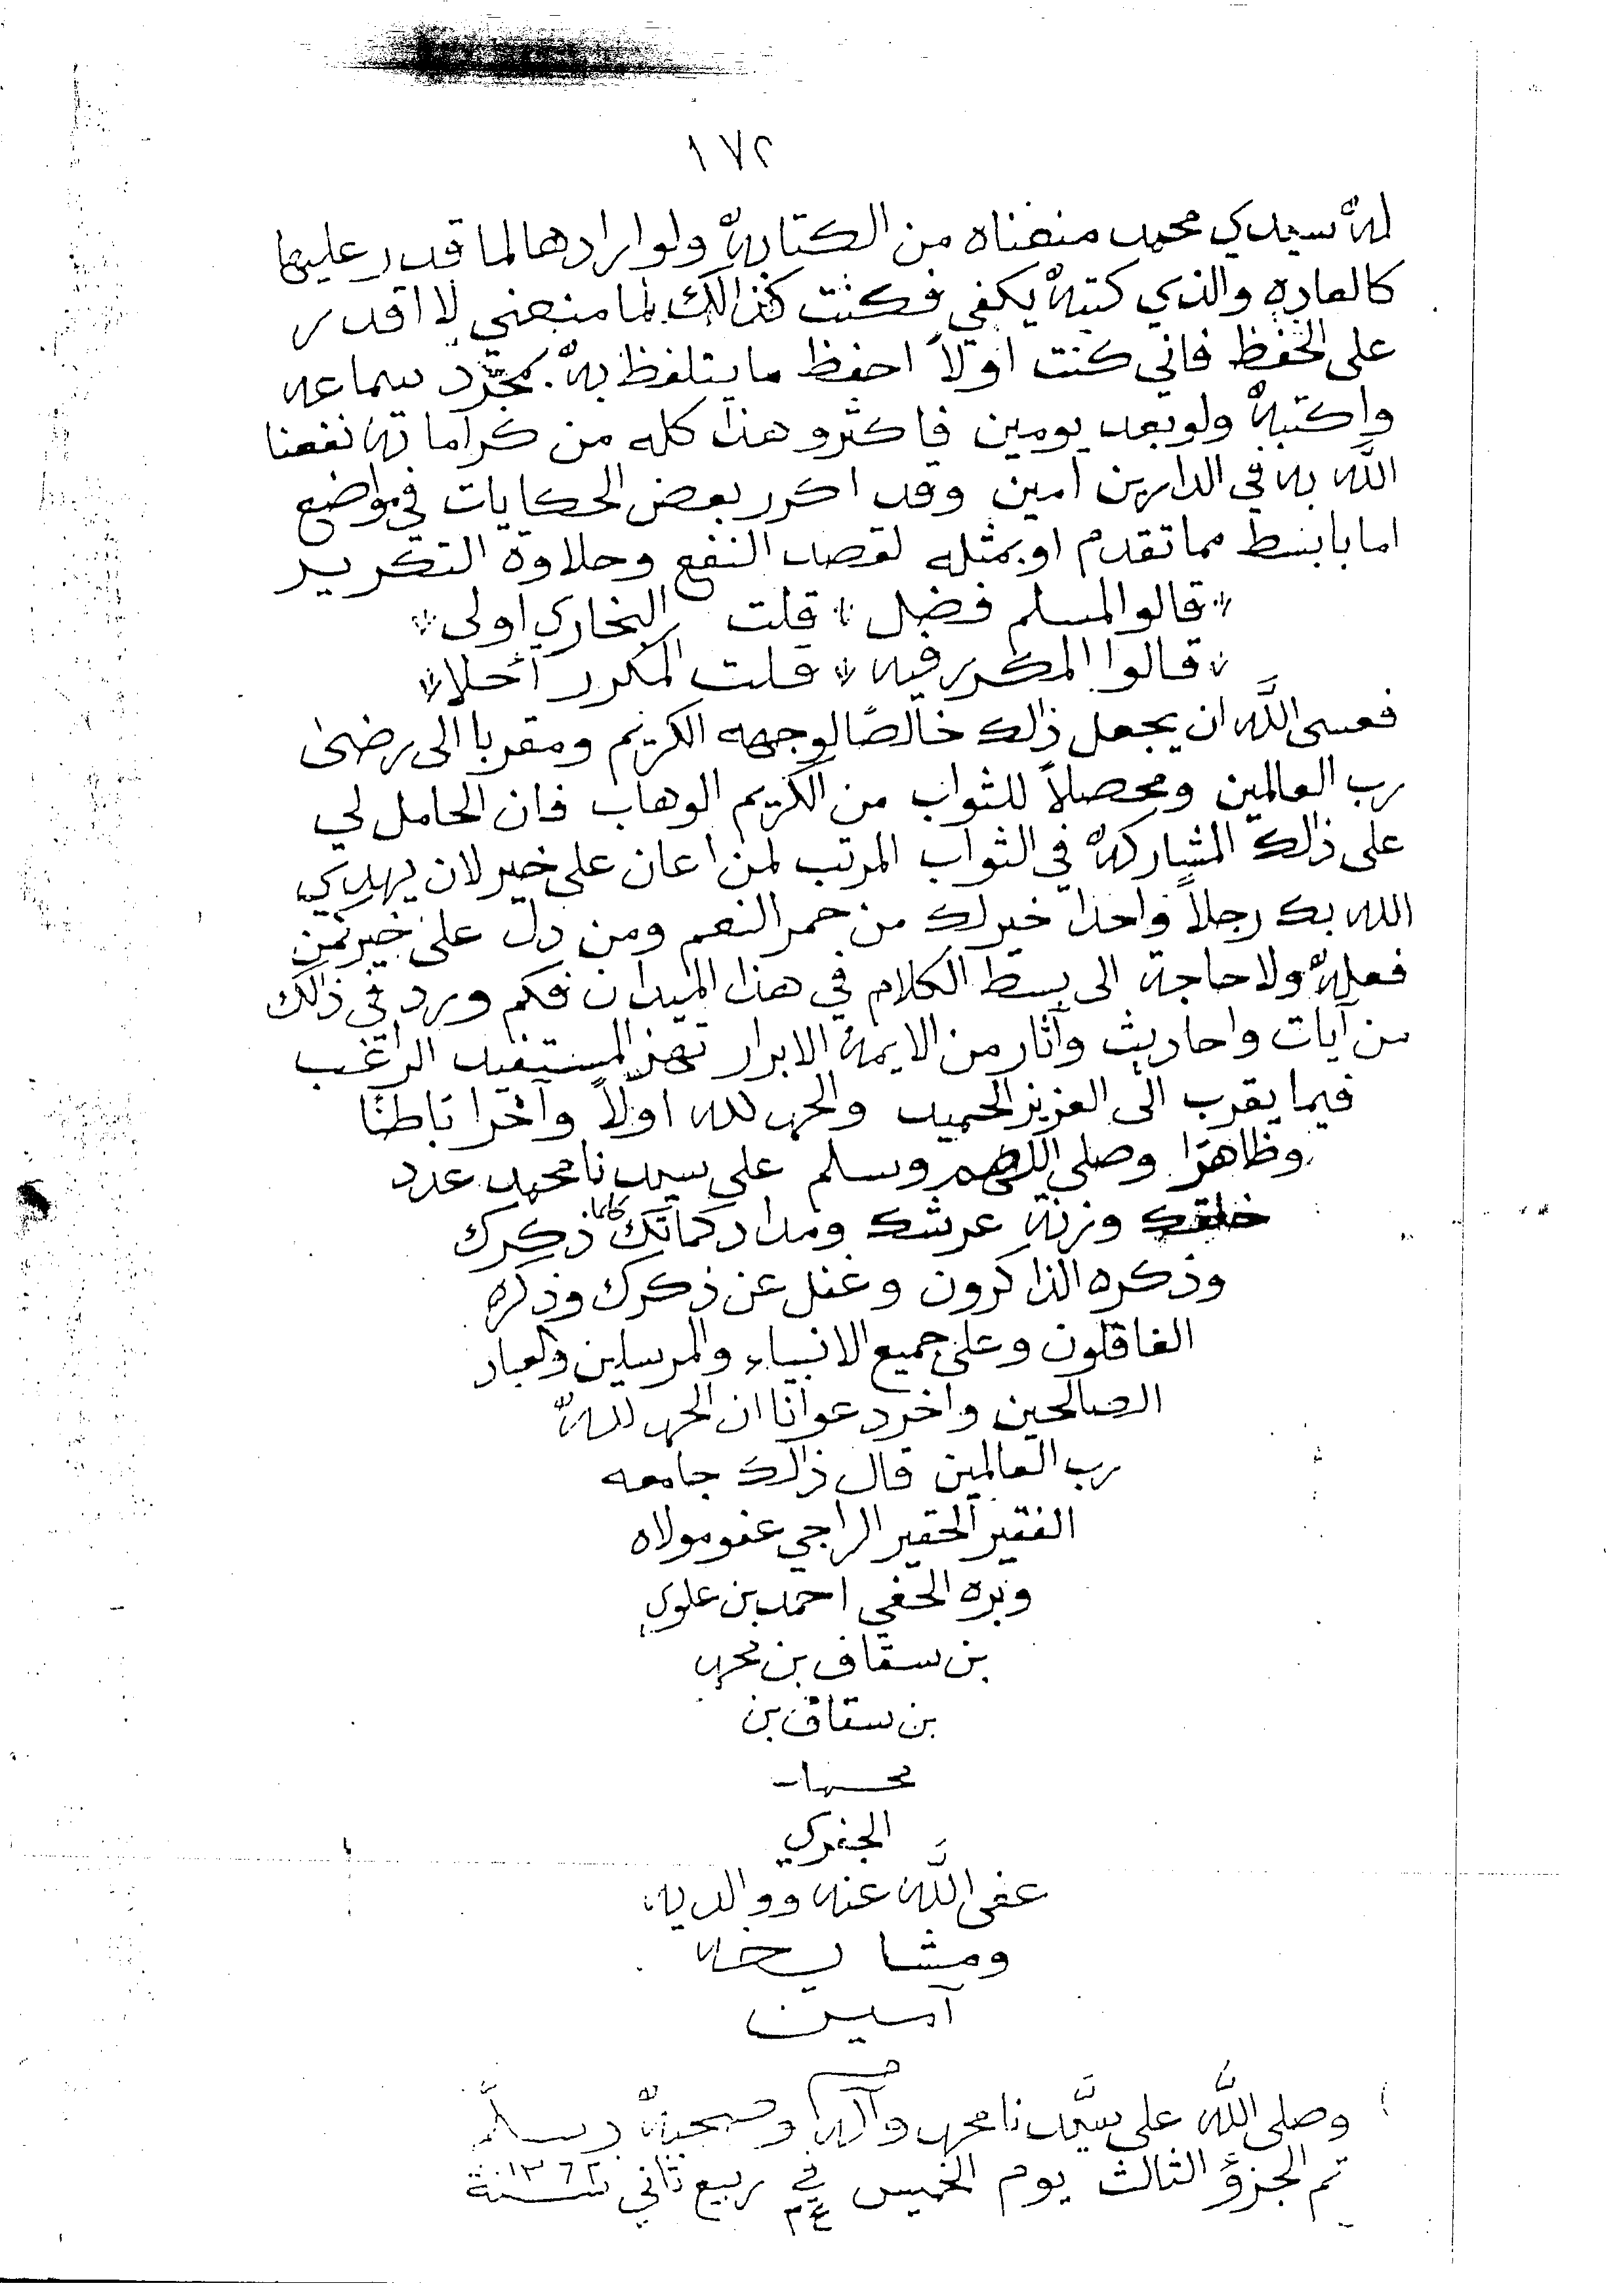 ١٧٢
له سيدي محمد منعناه من الكتابة ولو ارادها لما قدر عليها
كالعادة والذي كتبه يكفي فكنت كذالك لما منعني لا اقدر
على الحفظ فاني كنت اولاً احفظ ما يتلفظ به بمجرّد سماعه
واكتبه ولو بعد يومين فاكثر وهذا كله من كراماته نفعنا
اللّه به في الدارين امين وقد اكرر بعض الحكايات في مواضع
اما بابسط مما تقدم او بمثله لقصد النفع وحلاوة التكرير
قالو المسلم فضل قلت البخاري اولى
قالوا المكرر فيه قلت المكرر أحلا
فعسى اللَّه ان يجعل ذالك خالصًا لوجهه الكريم ومقربا الى رضى
رب العالمين ومحصلاً للثواب من الكريم الوهاب فان الحامل لي
على ذالك المشاركة في الثواب المرتب لمن اعان على خير لان يهدي
الله بك رجلاً واحدا خير لك من حمر النعم ومن دل على خير كمن
فعله ولا حاجة الى بسط الكلام في هذا الميدان فكم ورد في ذالك
من آيات واحاديث وآثار من الايمة الابرار تهز المستفيد الراغب
فيما يقرب الى العزيز الحميد والحمد لله اولاً وآخرا باطنًا
وظاهرًا وصلى اللهم وسلم على سيدنا محمد عدد
خلقك وزنة عرشك ومداد كماتك كلما ذكرك
وذكره الذاكرون وغفل عن ذكرك وذكره
الغافلون وعلى جميع الانبياء والمرسلين والعباد
الصالحين واخر دعوانا ان الحمد لله
رب العالمين قال ذالك جامعه
الفقير الحقير الراجي عفو مولاه
وبره الحفي احمد بن علوي
بن سقاف بن محمد
بن سقاف بن
محمد
الجفري
عفى اللَّه عنه ووالديه
ومشايخه
آمين
وصلى اللَّه على سيّدنا محمد وآله وصحبه وسلّم
تم الجزؤ الثالث يوم الخميس في ٢٤ ربيع ثاني سنة ١٣٦٢